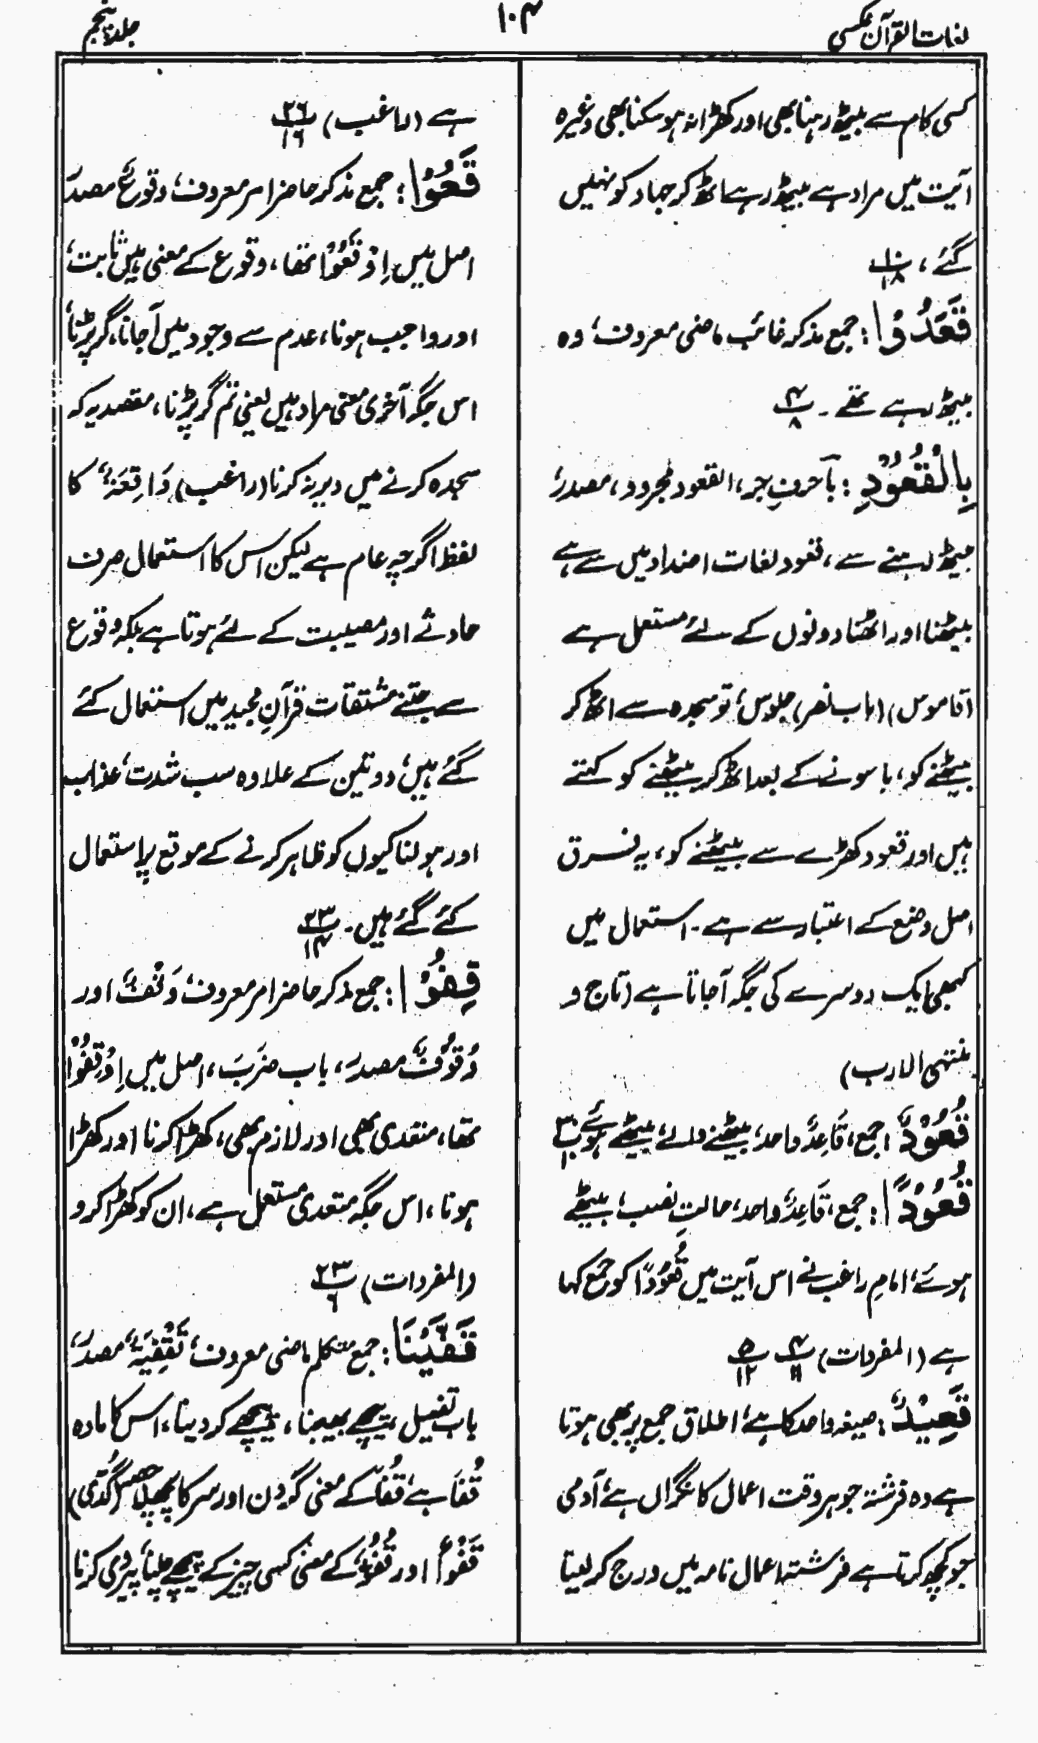 لغات القرآن عکسی
۱۰۴
جلد پنجم
کسی کام سے بیٹھ رہنا بھی اور کھڑا نہ ہو سکنا بھی وغیرہ
آیت میں مراد ہے بیٹھ رہے اٹھ کر جہاد کو نہیں
گئے، ۱۰/۱۸
قَعَدُوْا: جمع مذکر غائب ماضی معروف، وہ
بیٹھ رہے تھے۔ ۴/۸
بِالْقُعُوْدِ: بآ حرفِ جر، القعود مجرور، مصدرْ
بیٹھ رہنے سے، قعود لغات اضداد میں سے ہے
بیٹھنا اور اٹھنا دونوں کے لئے مستعمل ہے
(قاموس) (باب نصر) جلوس، تو سجدہ سے اٹھ کر
بیٹھنے کو، یا سونے کے بعد اٹھ کر بیٹھنے کو کہتے
ہیں اور قعود کھڑے سے بیٹھنے کو، یہ فرق
اصل وضع کے اعتبار سے ہے۔ استعمال میں
کبھی ایک دوسرے کی جگہ آجاتا ہے (تاج و
منتہی الارب)
قُعُوْدٌ: جمع، قَاعِدٌ واحد، بیٹھنے والے، بیٹھے ہوئے ۳۰/۱۰
قُعُوْدًا: جمع، قَاعِدٌ واحد، حالتِ نصب، بیٹھے
ہوئے، امامِ راغب نے اس آیت میں قُعُوْدًا کو جمع کہا
ہے (المفردات) ۴/۱۱ ۵/۱۲
قَعِیْدٌ: صیغہ واحد کا ہے، اطلاق جمع پر بھی ہوتا
ہے وہ فرشتہ جو ہر وقت اعمال کا نگراں ہے، آدمی
جو کچھ کرتا ہے فرشتہ اعمال نامہ میں درج کر لیتا
ہے (راغب) ۲۶/۱۶
قَعُوْا: جمع مذکر حاضر امر معروف، وقوعٌ مصدر
اصل میں اِوْقَعُوْا تھا، وقوع کے معنی ہیں ثابت،
اور واجب ہونا، عدم سے وجود میں آجانا، گر پڑنا،
اس جگہ آخری معنی مراد ہیں یعنی تم گر پڑنا، مقصد یہ کہ
سجدہ کرنے میں دیر نہ کرنا (راغب) وَاقِعَۃٌ کا
لفظ اگرچہ عام ہے لیکن اس کا استعمال صرف
حادثے اور مصیبت کے لئے ہوتا ہے بلکہ وقوع
سے جتنے مشتقات قرآنِ مجید میں استعمال کئے
گئے ہیں، دو تین کے علاوہ سب شدت، عذاب
اور ہولناکیوں کو ظاہر کرنے کے موقع پر استعمال
کئے گئے ہیں۔ ۲۳/۱۴
قِفُوْا: جمع مذکر حاضر امر معروف، وَقْفٌ اور
وُقُوْفٌ مصدر، باب ضَرَبَ، اصل میں اِوْقِفُوْا
تھا، متعدی بھی اور لازم بھی، کھڑا کرنا اور کھڑا
ہونا، اس جگہ متعدی مستعمل ہے، ان کو کھڑا کرو
(المفردات) ۲۳/۶
قَفَّیْنَا: جمع متکلم ماضی معروف، تَقْفِیَۃٌ مصدر،
باب تفعیل، پیچھے بھیجنا، پیچھے کر دینا، اس کا مادہ
قُفاَ ہے، قُفاَ کے معنی گردن اور سر کا پچھلا حصہ (گُدّی)
قَفْوٌ اور قُفُوٌّ کے معنی کسی چیز کے پیچھے چلنا، پیروی کرنا